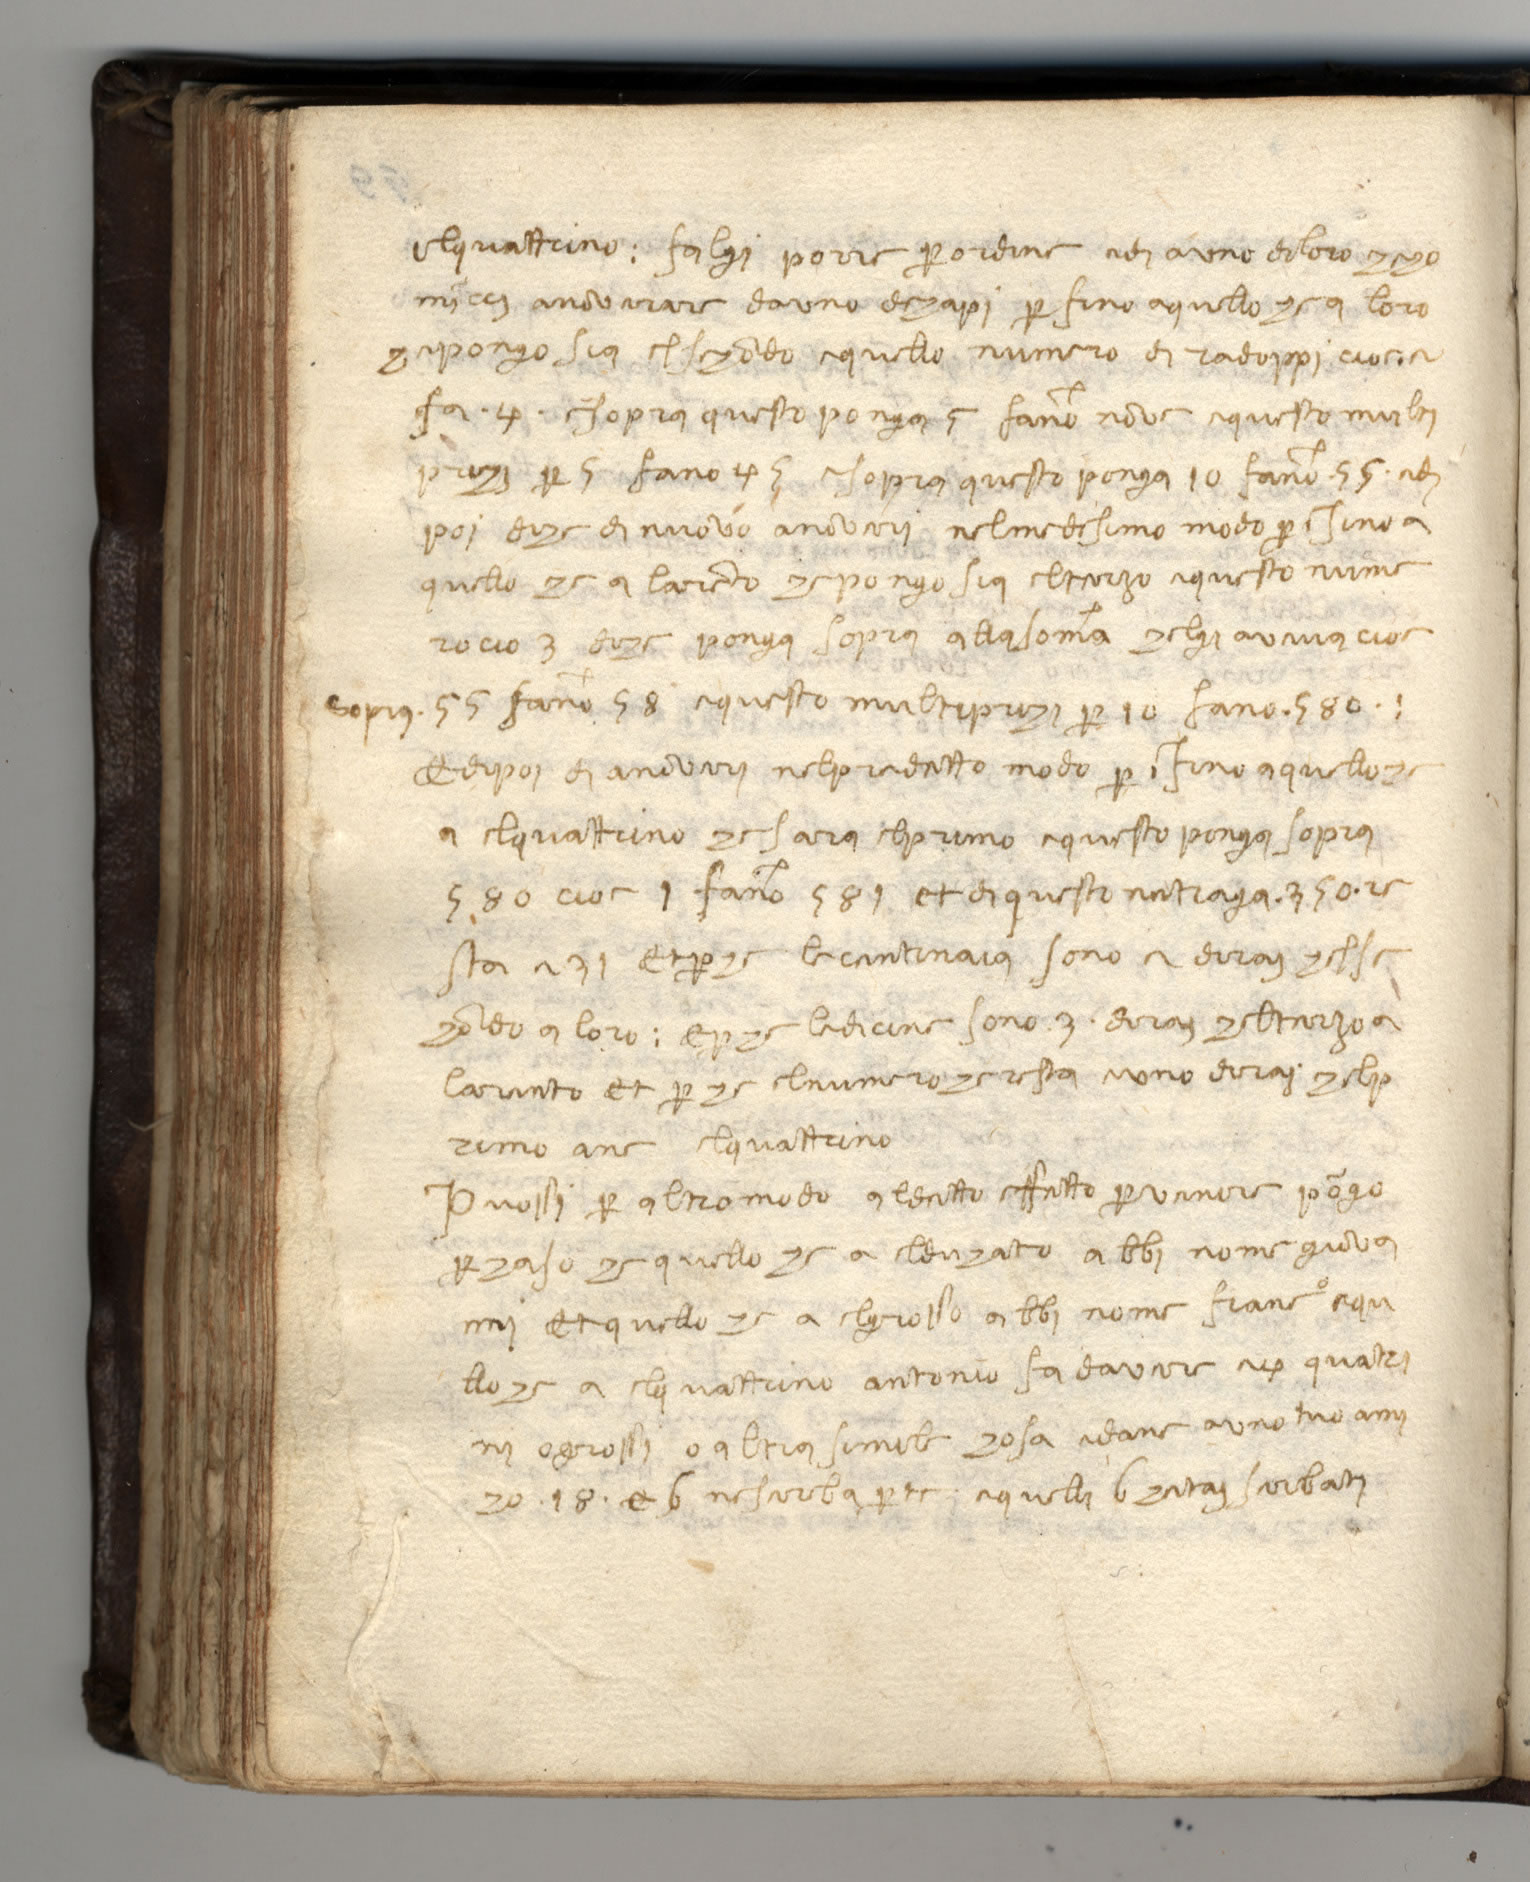 elquattrino : falgi porre p ordine edi a uno di loro che co
minci anoverare da uno de capi p fino a quello che a loro
che pongo sia el secõdo e quello numero di radoppi cioe . 2
fa . 4 . e sopra questo ponga 5 fanō nove e questo multi
prichi p 5 fano 45 e sopra questo ponga 10 fanō . 55 . edi
poi diche di nuovo anoveri nel medesimo modo p ĩsino a
quello che a larēto che pongo sia elterzo e questo nume
ro cio 3 diche ponga sopra alla soma chelgi aveva cioe
sopra . 55 fanō 58 e questo multiprichi p 10 fano . 580 . :
Et dipoi di anoveri nel predetto modo p ĩsino a quello che
a elquattrino che sara el primo e questo ponga sopra
580 cioe 1 fanō 581 et di questo netraga . 350 . re
sta 231 et p che le centinaia sono 2 dirai chelse
cōdo a loro : e p che le dicine sono . 3 . dirai chelterzo a
lariento et p che el numero che resta e uno dirai chelp
rimo ane elquattrino
Puossi p altro modo al detto effetto pvenire põgo
p chaso che quello che a elduchato abbi nome giova
nni et quello che a elgrosso abbi nome franc° e que
llo che a elquattrino antonio fa davere 24 quatri
ni o grossi o altra simile chosa e dane a uno tuo ami
cho . 18 . e 6 ne serba p te . e quelli 6 che tai serbati